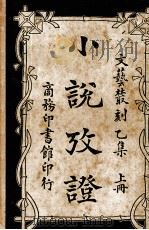 文藝叢刻乙集 上冊
小說攷證
商務印書館印行